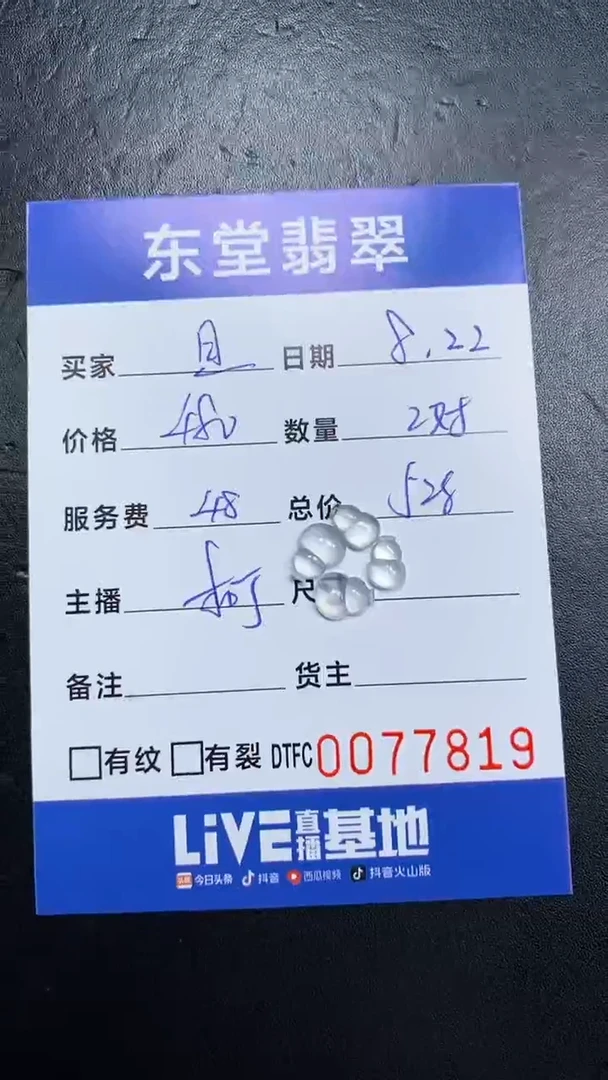 东堂翡翠
买家 旦 日期 8.22
价格 480 数量 2对
服务费 48 总价 528
主播 柯 尺
备注 货主
有纹 有裂 DTFC 0077819
LiVE直播基地
头条 今日头条 抖音 西瓜视频 抖音火山版